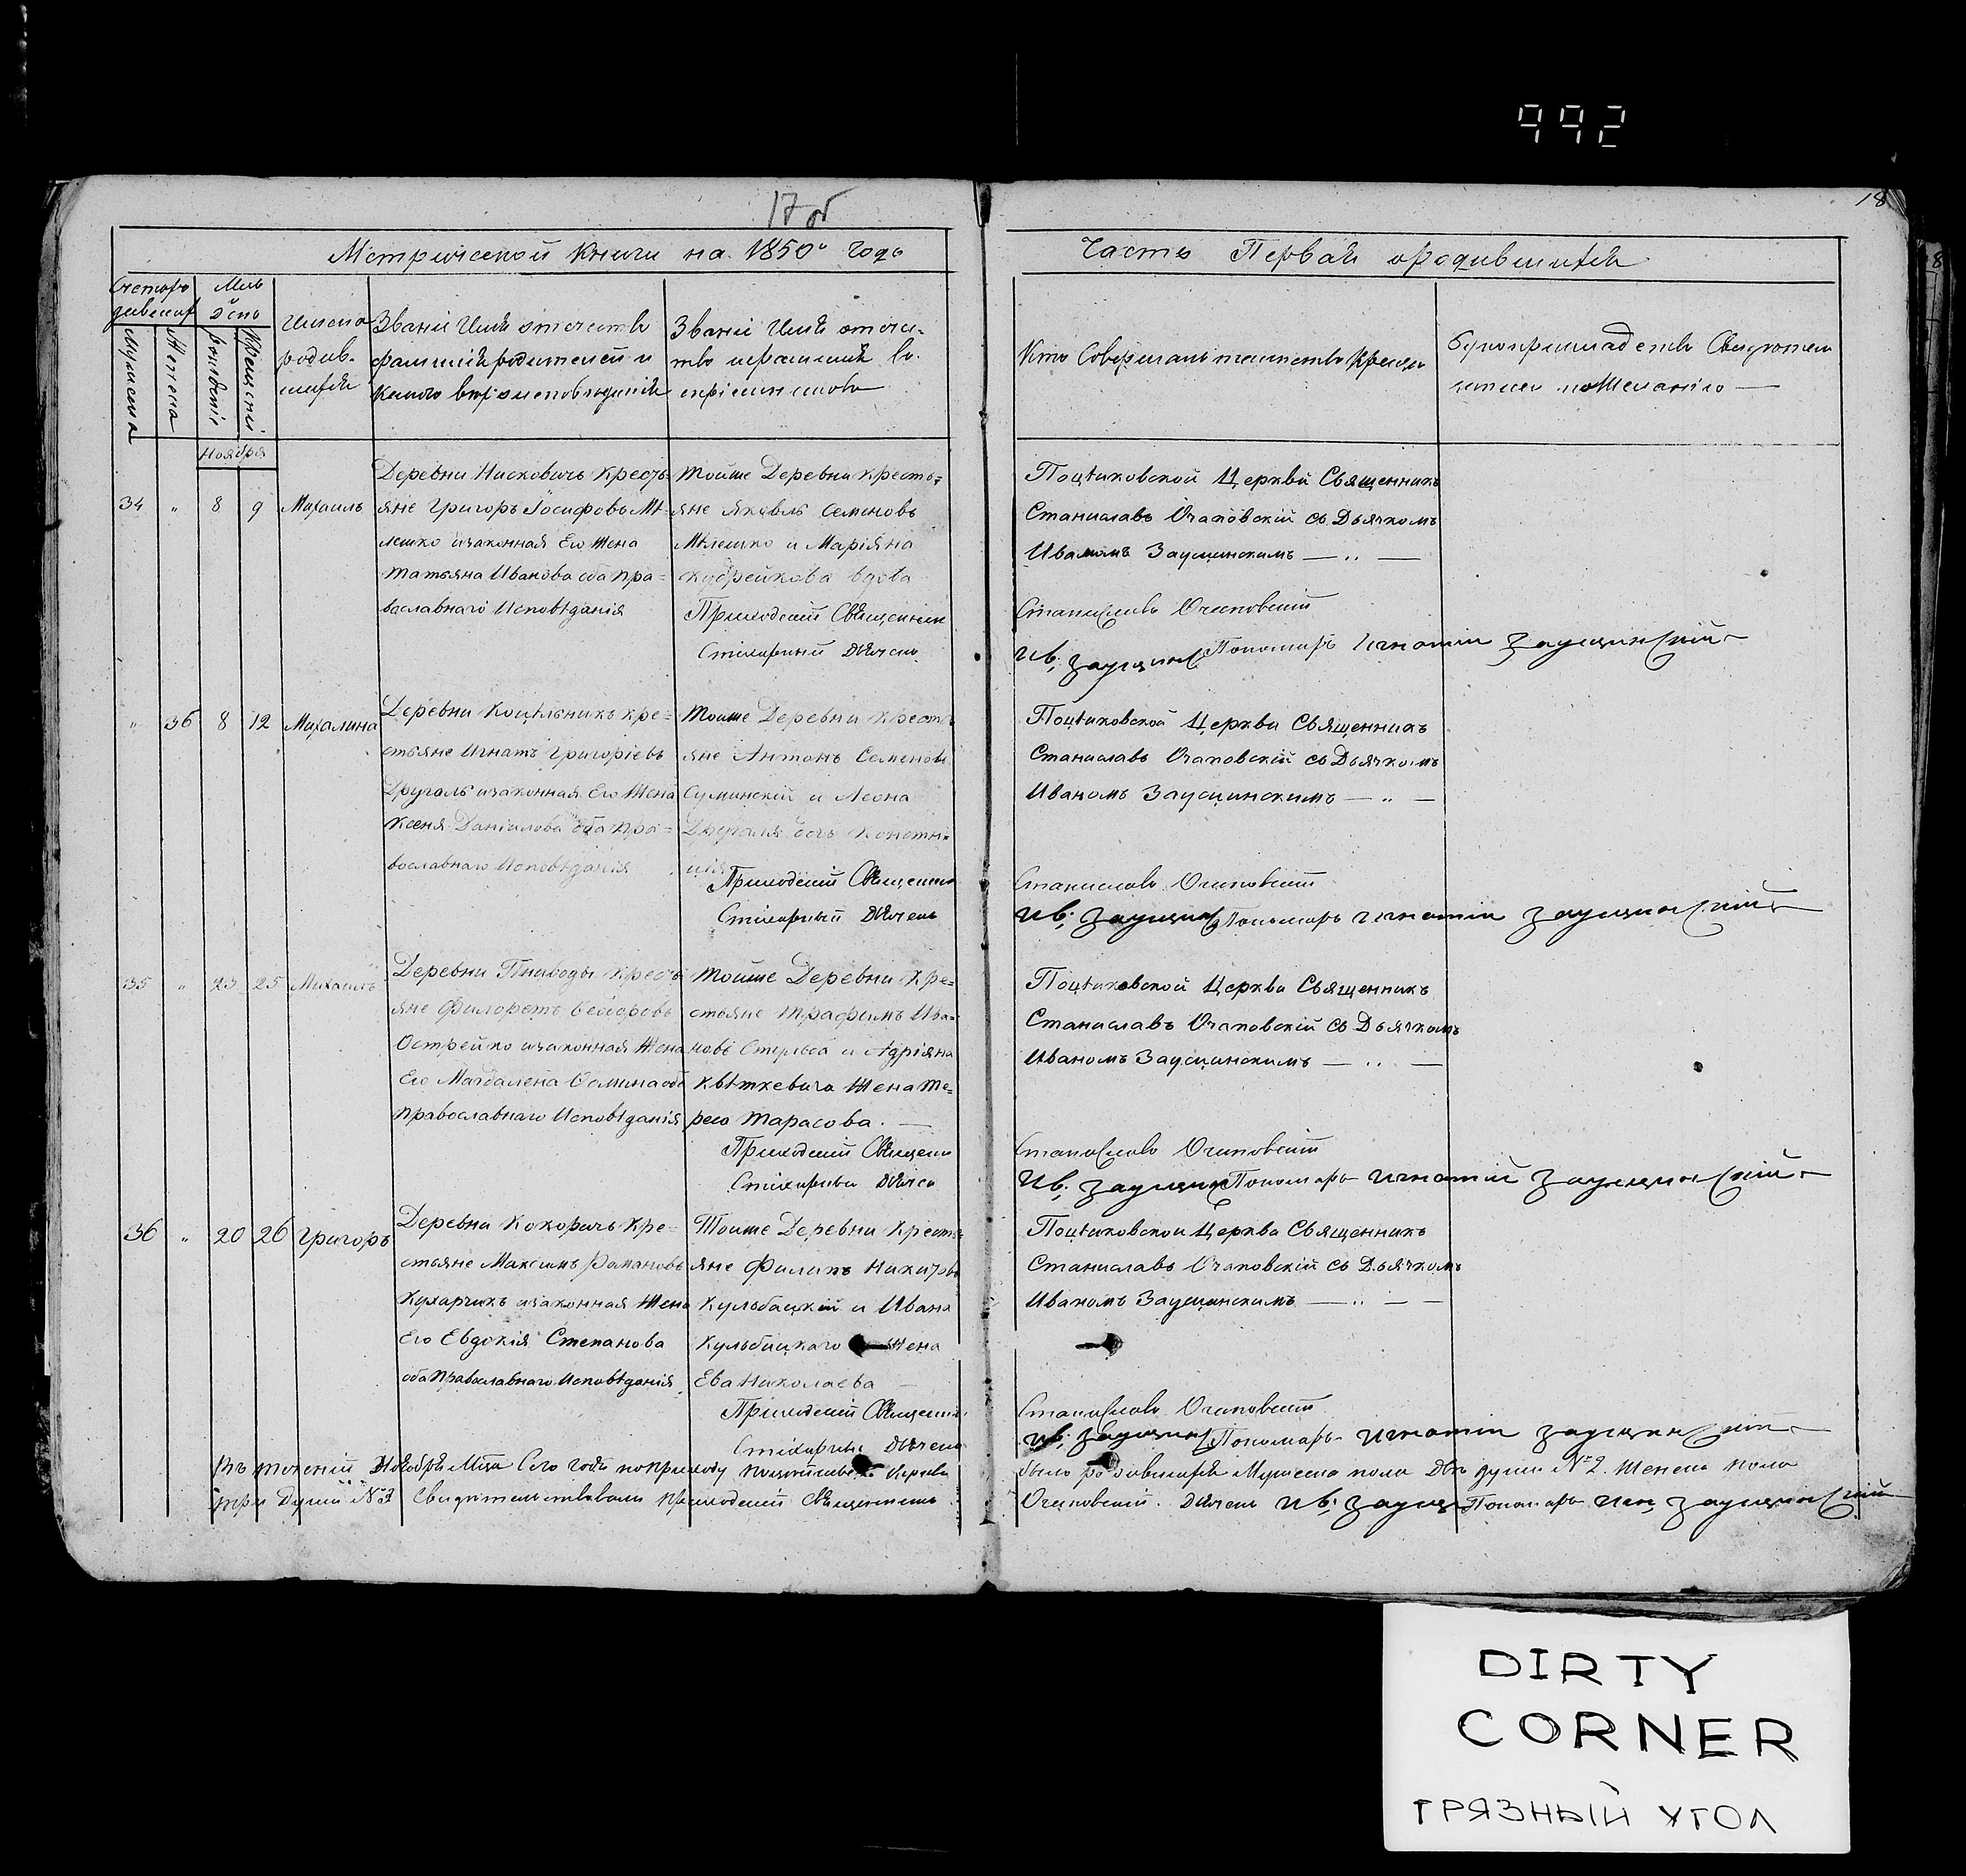 992
17 об
18
Метрической Книги на 1850й годъ
Часть Первая о родившихся
Мужеска
Женска
рождения
Крещения
Имена
родив-
шихся
Званіе Имя отечество
Званіе Имя отече-
Кто Совершалъ таинство Крещен
Ноября
Деревни Нисковичъ Кресть-
34 „ 8 9 Михаилъ
яне Григоръ Іосифовъ Мѣ-
лешко и законная Его Жена
Татьяна Иванова оба пра=
вославнаго Исповѣданія
Тойже Деревни кресть=
яне Яковль Семеновъ
Мѣлешко и Маріяна
Кудрейкова вдова
Приходскій Священник
Стихарный Дьячекъ
Поцѣиковской Церкви Священникъ
Станиславъ Очаповскій съ Дьячкомъ
Иваномъ Заусцинскимъ — „ —
Станиславъ Очаповскій
Ив. Заусцинс Пономаръ Игнатій Заусцинскій
„ 36 8 12 Михалина
Деревни Коцѣльникъ кре=
стьяне Игнатъ Григоріевъ
Другаль и законная Его Жена
Ксеня Даніилова оба пра=
вославнаго Исповѣданія
Тойже Деревни Кресть
яне Антонъ Семеновъ
Суминскій и Леона
Другаля дочь Констан=
ція
Приходскій Священник
Стихарный Дьячекъ
Поцѣиковской Церкви Священникъ
Станиславъ Очаповскій съ Дьячкомъ
Иваномъ Заусцинскимъ — „ —
Станиславъ Очаповскій
Ив. Заусцинс Пономаръ Игнатій Заусцинскій
35 „ 23 25 Михаилъ
Деревни Гниводы Кресть
яне Филоретъ Ѳеодоровъ
Острейко и законная Жена
Его Магдалена Осмина оба
Православнаго Исповѣданія
Тойже Деревни Кре=
стьяне Трафимъ Ива=
новъ Стрльса и Адріяна
Квѣткевича Жена Те=
реса Тарасова. —
Приходскій Священ
Стихарный Дьячек
Поцѣиковской Церкви Священникъ
Станиславъ Очаповскій съ Дьячкомъ
Иваномъ Заусцинскимъ — „ —
Станиславъ Очаповскій
Ив. Заусцинс Пономаръ Игнатій Заусцинскій
36 „ 20 26 Григоръ
Деревни Кокоричъ Кре=
стьяне Максимъ Романовъ
Кухарчикъ и законная Жена
Его Евдокія Степанова
оба Православнаго Исповѣданія
Тойже Деревни Кресть=
яне Филипъ Никитовъ
Кульбацкій и Ивана
Кульбацкаго Жена
Ева Николаева —
Приходскій Священник
Стихарный Дьячекъ
Поцѣиковской Церкви Священникъ
Станиславъ Очаповскій съ Дьячкомъ
Иваномъ Заусцинскимъ — „ —
Станиславъ Очаповскій
Ив. Заусцинс Пономаръ Игнатій Заусцинскій
Въ теченіи Ноября Мца Сего года по приходу Церкви
было родившихся Мужеска пола Двѣ души №2. Женска пола
три Души №3 Свидѣтельствовали приходскій Священникъ
Очаповскій. Дьячекъ Ив. Заусц Пономаръ Игн. Заусцинскій
DIRTY
CORNER
ГРЯЗНЫЙ УГОЛ